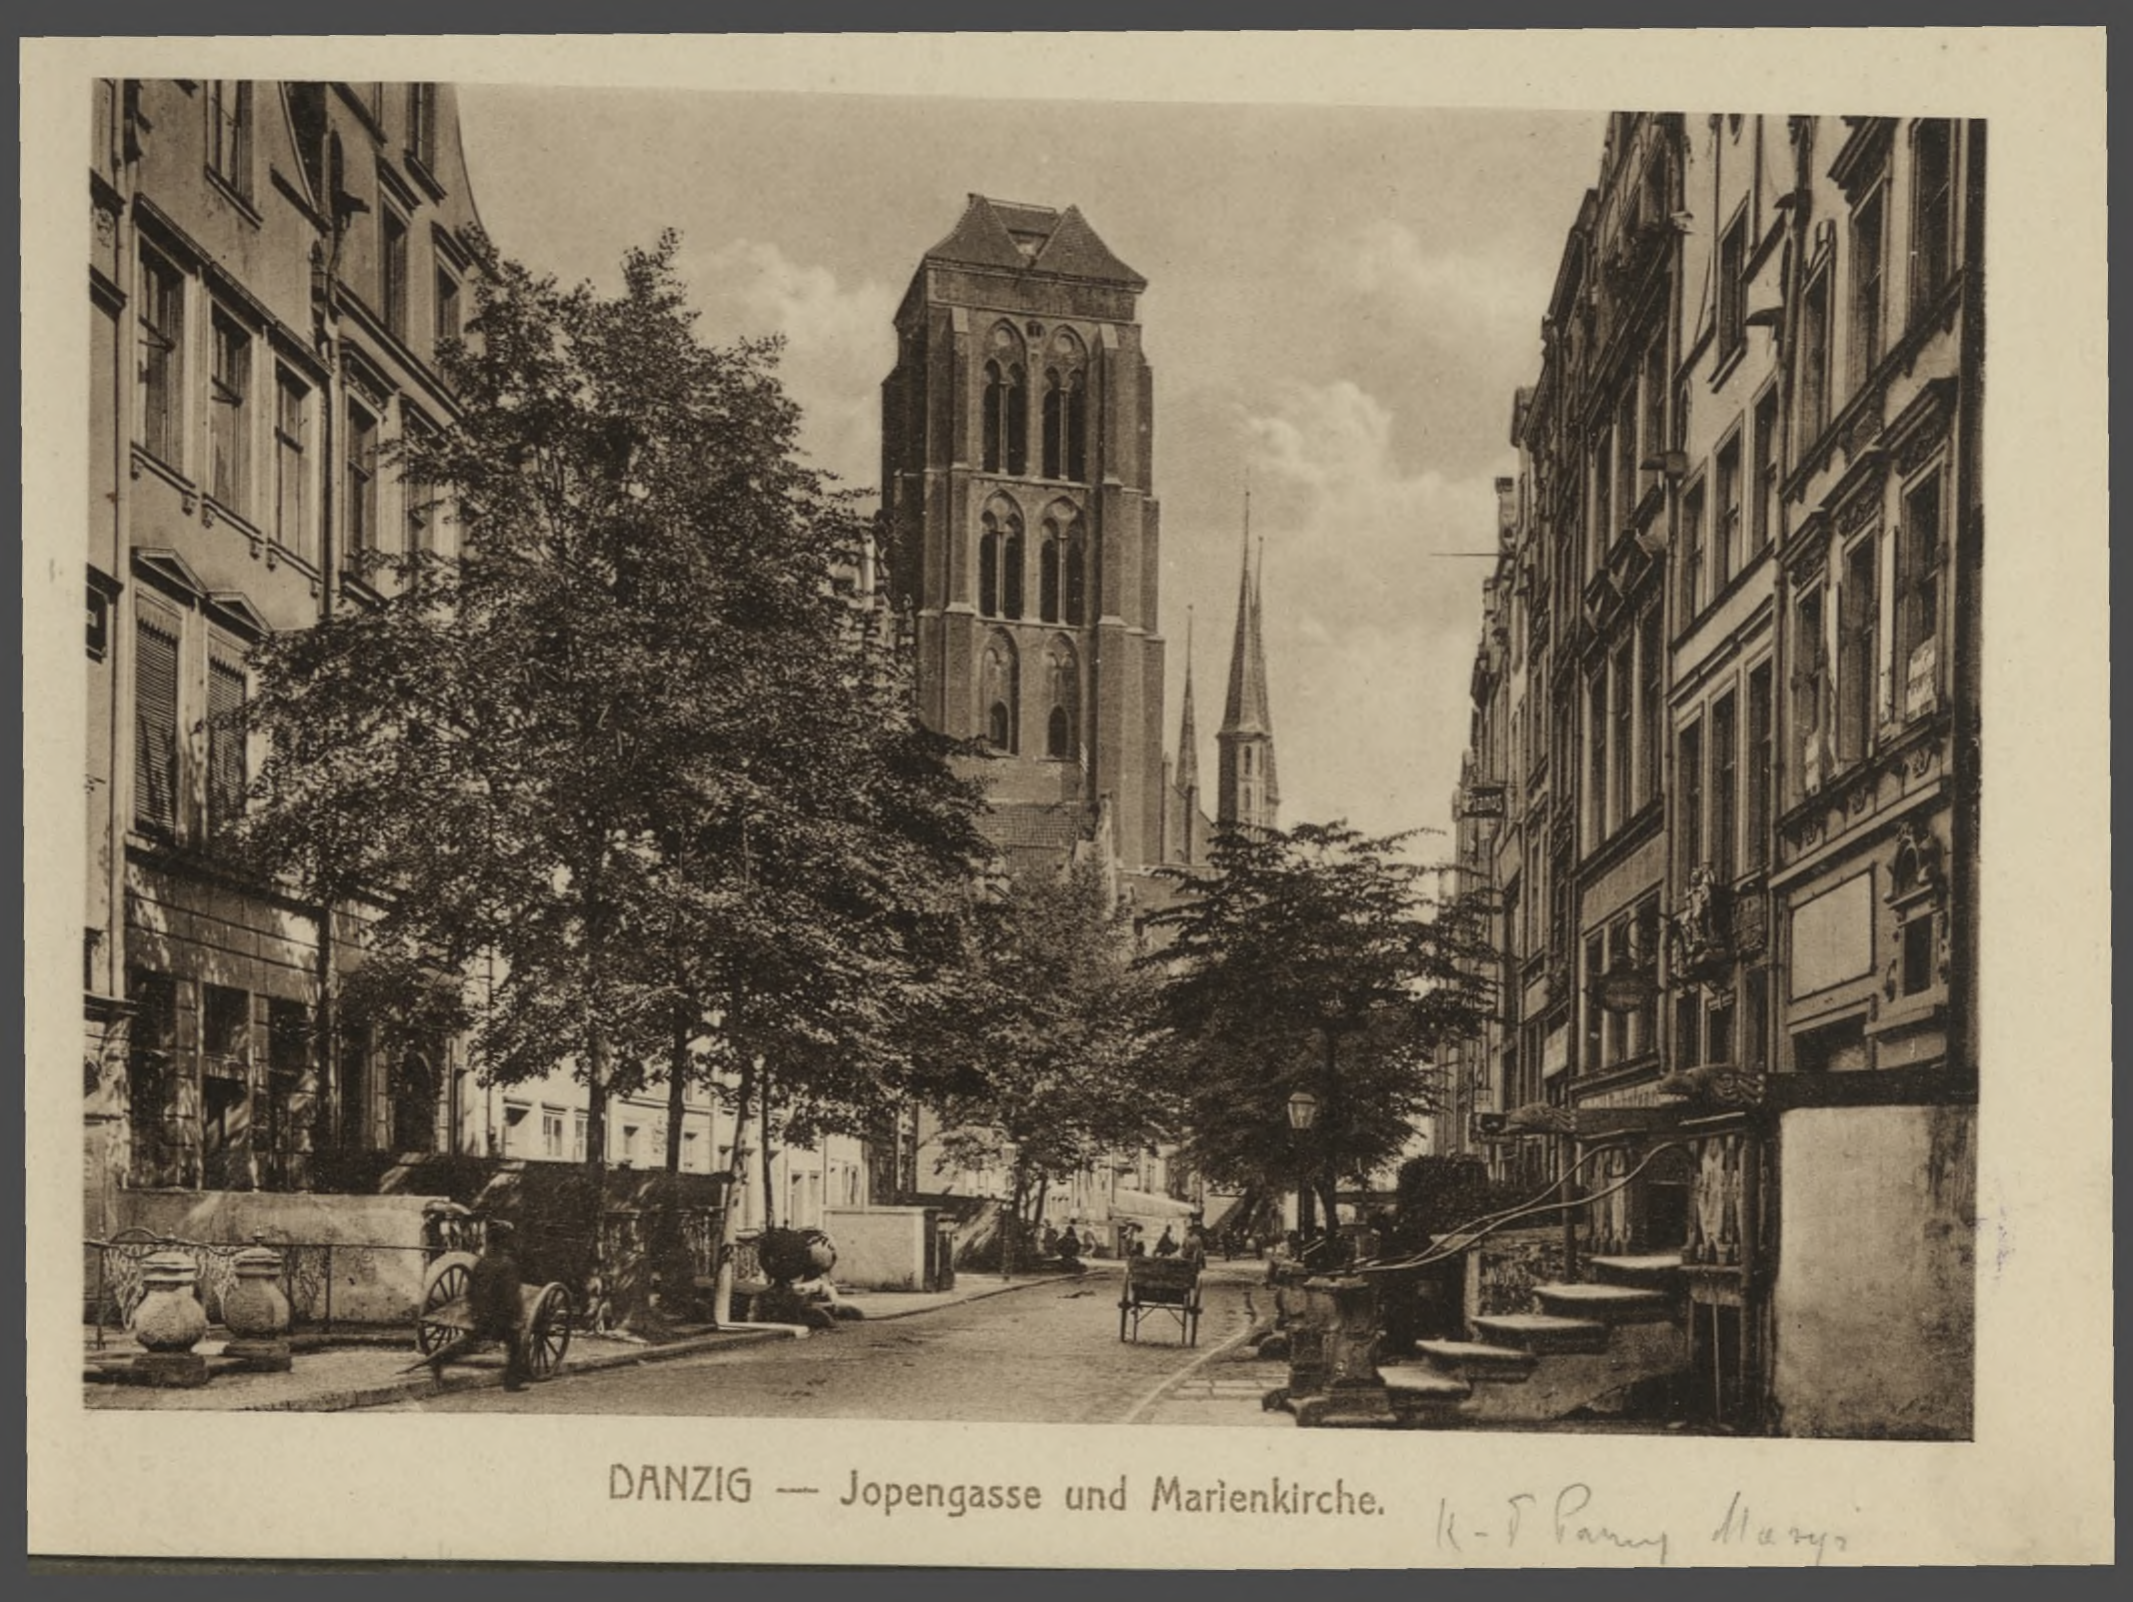 Pianos
DANZIG — Jopengasse und Marienkirche.
K-ł Panny Maryi